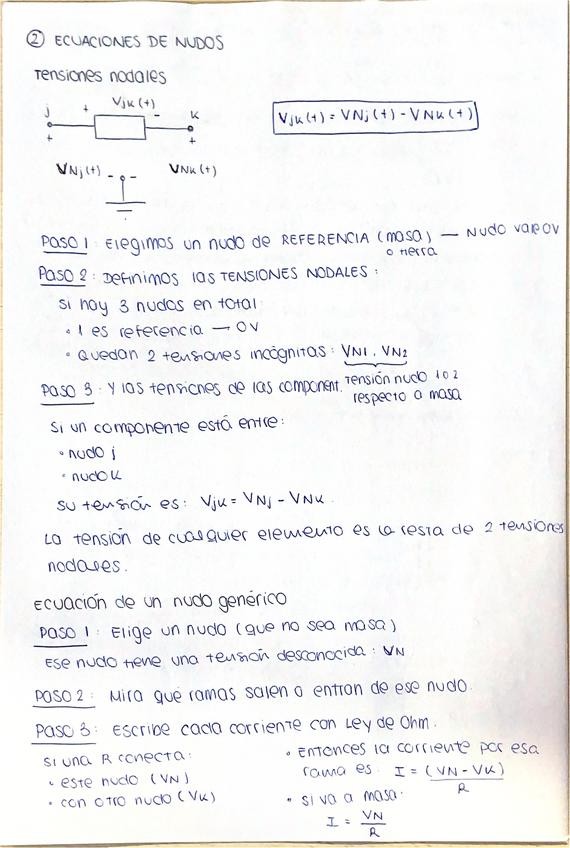 ② ECUACIONES DE NUDOS
Tensiones nodales
Vjk(t)
j + - K
+ +
Vjk(t) = VNj(t) - VNk(t)
VNj(t) - - VNk(t)
PASO 1: Elegimos un nudo de REFERENCIA (masa) — Nudo vale 0V
o tierra
PASO 2: Definimos las TENSIONES NODALES:
Si hay 3 nudos en total:
• 1 es referencia — 0V
• Quedan 2 tensiones incógnitas: VN1, VN2
PASO 3: Y las tensiones de las component. Tensión nudo 1 o 2
respecto a masa
Si un componente está entre:
• nudo j
• nudo K
Su tensión es: Vjk = VNj - VNk.
La tensión de cualquier elemento es la resta de 2 tensiones
nodales.
Ecuación de un nudo genérico
PASO 1: Elige un nudo (que no sea masa)
Ese nudo tiene una tensión desconocida: VN
PASO 2: Mira qué ramas salen o entran de ese nudo.
PASO 3: Escribe cada corriente con Ley de Ohm.
Si una R conecta:
• este nudo (VN)
• con otro nudo (VK)
• Entonces la corriente por esa
rama es: I = (VN - VK)
R
• Si va a masa:
I = VN
R